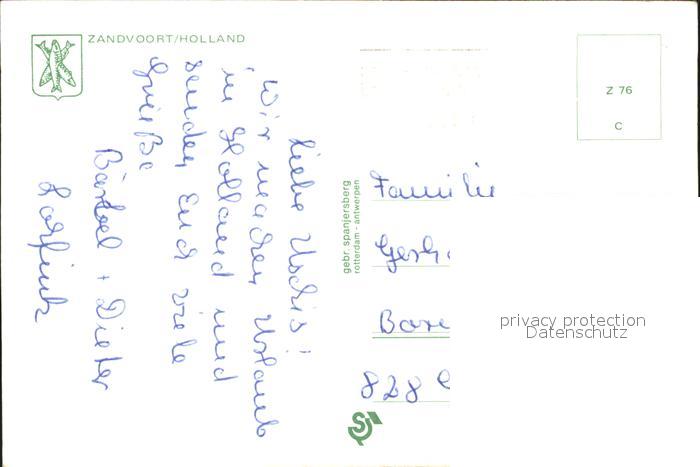 ZANDVOORT/HOLLAND
Z 76
C
Liebe Uschis!
Wir machen Urlaub
in Holland und
senden Euch viele
Grüße
Bärbel + Dieter
gebr. spanjersberg
rotterdam - antwerpen
Familie
828
privacy protection
Datenschutz